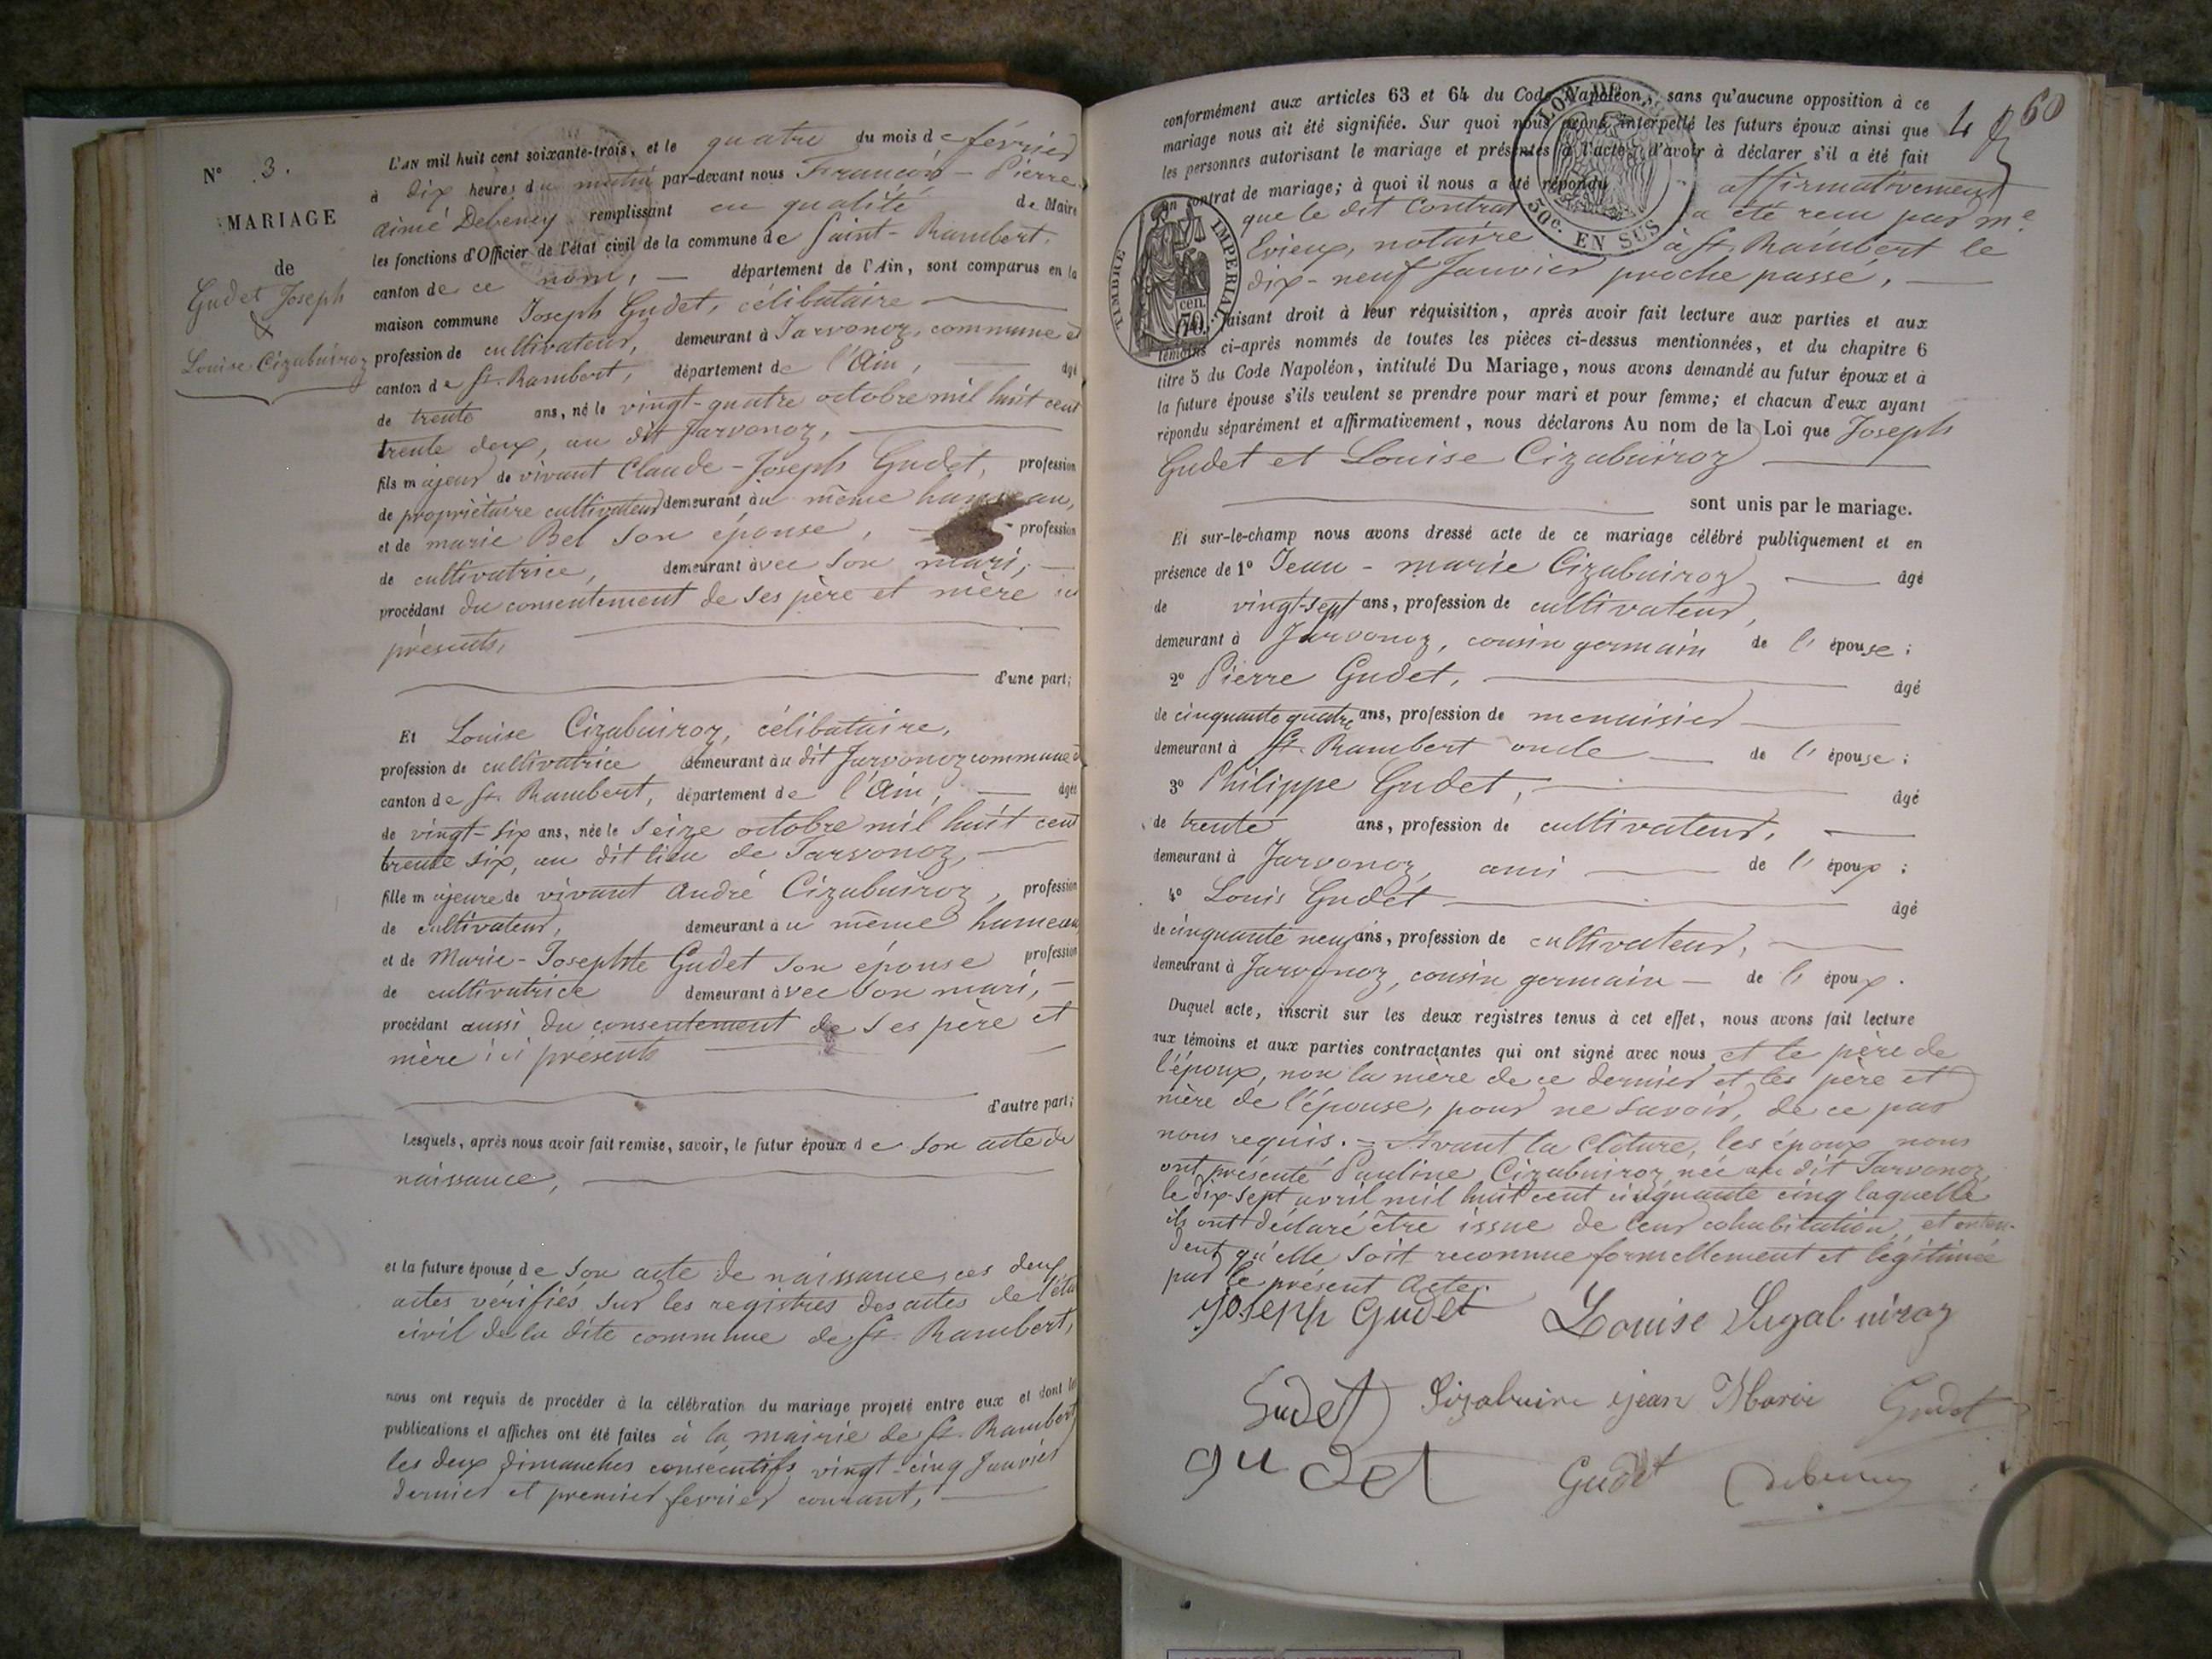 N° 3.
MARIAGE
de
Gudet Joseph
&
Louise Cizabuiroz
L'AN mil huit cent soixante-trois, et le quatre du mois de février
à dix heures du matin par-devant nous François-Pierre
aimé Debeney remplissant en qualité de Maire
les fonctions d'Officier de l'état civil de la commune de Saint-Rambert,
canton de ce nom, — département de l'Ain, sont comparus en la
maison commune Joseph Gudet, célibataire
profession de cultivateur, demeurant à Jarvonoz, commune et
canton de St. Rambert, département de l'Ain, âgé
de trente ans, né le vingt-quatre octobre mil huit cent
trente deux, au dit Jarvonoz,
fils majeur de vivant Claude-Joseph Gudet, profession
de propriétaire cultivateur demeurant au même hameau,
et de marie Bel son épouse, profession
de cultivatrice, demeurant avec son mari,
procédant du consentement de ses père et mère ici
présents,
d'une part;
Et Louise Cizabuiroz, célibataire,
profession de cultivatrice demeurant au dit Jarvonoz commune et
canton de St. Rambert, département de l'Ain, âgée
de vingt-six ans, née le seize octobre mil huit cent
trente six, au dit lieu de Jarvonoz,
fille majeure de vivant André Cizabuiroz, profession
de cultivateur, demeurant au même hameau
et de Marie-Josephte Gudet son épouse profession
de cultivatrice demeurant avec son mari, —
procédant aussi du consentement de ses père et
mère ici présents
d'autre part;
Lesquels, après nous avoir fait remise, savoir, le futur époux de son acte de
naissance,
et la future épouse de son acte de naissance, ces deux
actes vérifiés sur les registres des actes de l'état
civil de la dite commune de St. Rambert,
nous ont requis de procéder à la célébration du mariage projeté entre eux et dont les
publications et affiches ont été faites à la mairie de St. Rambert
les deux Dimanches consécutifs vingt-cinq Janvier
dernier et premier fevrier courant,
60
conformément aux articles 63 et 64 du Code Napoléon, sans qu'aucune opposition à ce
mariage nous ait été signifiée. Sur quoi nous avons interpellé les futurs époux ainsi que
les personnes autorisant le mariage et présentes à l'acte, d'avoir à déclarer s'il a été fait
un contrat de mariage; à quoi il nous a été répondu affirmativement
que le dit Contrat a été reçu par me
Evieux, notaire à St. Rambert le
dix-neuf Janvier proche passé,
TIMBRE IMPERIAL
cen.
70.
50c. EN SUS
faisant droit à leur réquisition, après avoir fait lecture aux parties et aux
témoins ci-après nommés de toutes les pièces ci-dessus mentionnées, et du chapitre 6
titre 5 du Code Napoléon, intitulé Du Mariage, nous avons demandé au futur époux et à
la future épouse s'ils veulent se prendre pour mari et pour femme; et chacun d'eux ayant
répondu séparément et affirmativement, nous déclarons Au nom de la Loi que Joseph
Gudet et Louise Cizabuiroz
sont unis par le mariage.
Et sur-le-champ nous avons dressé acte de ce mariage célébré publiquement et en
présence de 1° Jean-marie Cizabuiroz, âgé
de vingt-sept ans, profession de cultivateur,
demeurant à Jarvonoz, cousin germain de l'épouse;
2° Pierre Gudet, âgé
de cinquante quatre ans, profession de menuisier
demeurant à St. Rambert oncle de l'épouse;
3° Philippe Gudet, âgé
de trente ans, profession de cultivateur,
demeurant à Jarvonoz, ami de l'époux;
4° Louis Gudet âgé
de cinquante neuf ans, profession de cultivateur,
demeurant à Jarvonoz, cousin germain — de l'époux.
Duquel acte, inscrit sur les deux registres tenus à cet effet, nous avons fait lecture
aux témoins et aux parties contractantes qui ont signé avec nous et le père de
l'époux, non la mère de ce dernier et les père et
mère de l'épouse, pour ne savoir, de ce par
nous requis. — Avant la Clôture, les époux nous
ont présenté Pauline Cizabuiroz, née au dit Jarvonoz
le dix-sept avril mil huit cent cinquante cinq laquelle
ils ont déclaré être issue de leur cohabitation, et enten-
dent qu'elle soit reconnue formellement et légitimée
par le présent acte.
Joseph Gudet Louise Sigabuiroz
Gudet Sizabuire jean Marie Gudet
gudet Gudet Debeney